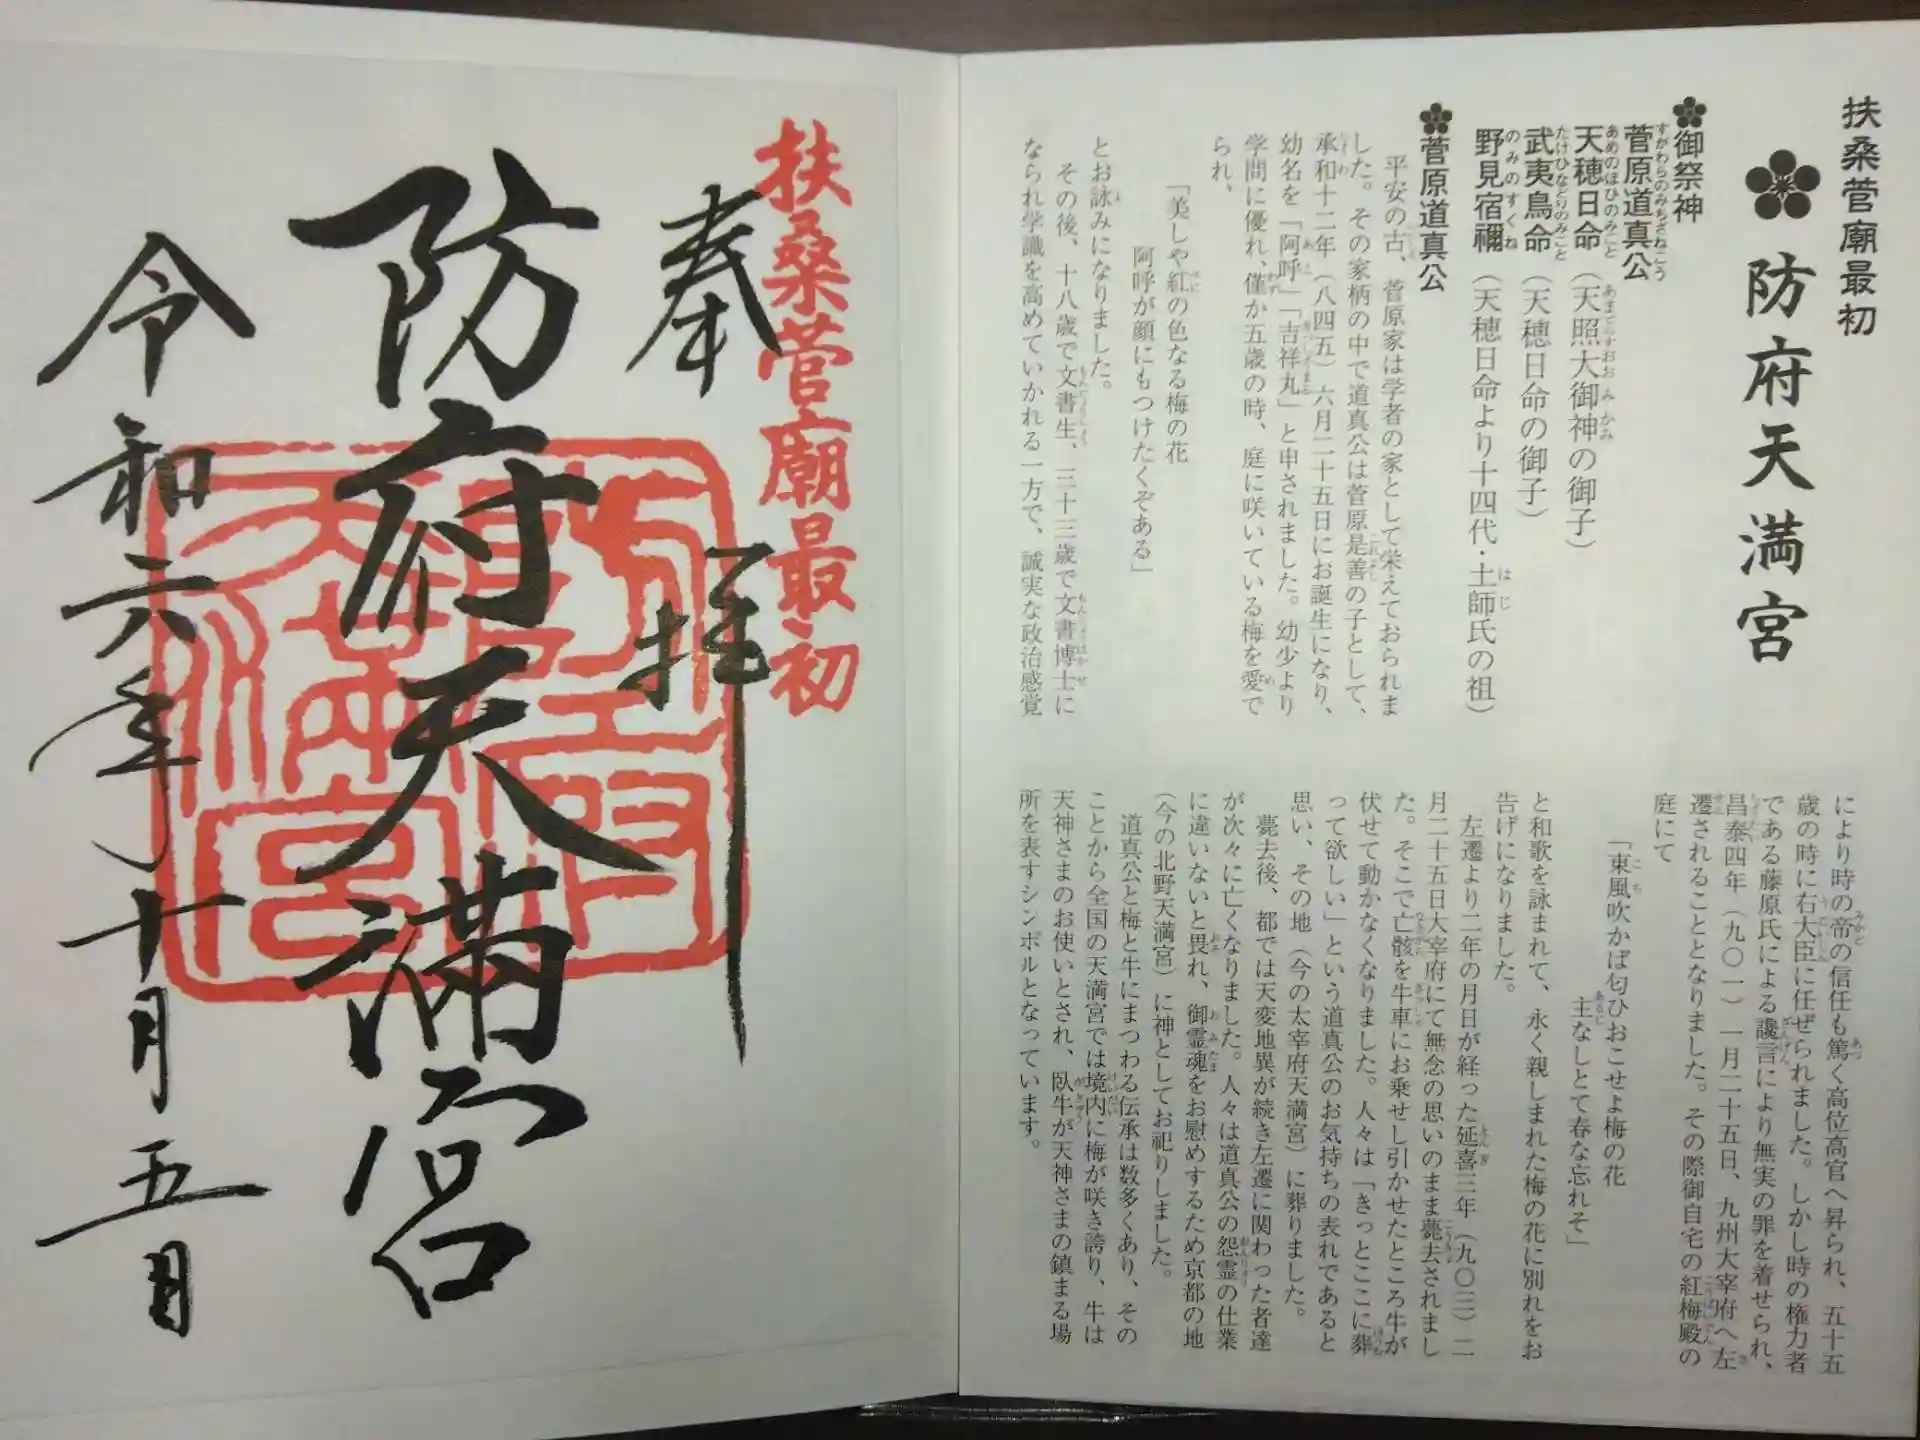 扶桑菅廟最初
防府天満宮
御祭神
菅原道真公
天穂日命（天照大御神の御子）
武夷鳥命（天穂日命の御子）
野見宿禰（天穂日命より十四代・土師氏の祖）
菅原道真公
平安の古、菅原家は学者の家として栄えておられま
した。その家柄の中で道真公は菅原是善の子として、
承和十二年（八四五）六月二十五日にお誕生になり、
幼名を「阿呼」「吉祥丸」と申されました。幼少より
学問に優れ、僅か五歳の時、庭に咲いている梅を愛で
られ、
「美しや紅の色なる梅の花
阿呼が顔にもつけたくぞある」
とお詠みになりました。
その後、十八歳で文書生、三十三歳で文書博士に
なられ学識を高めていかれる一方で、誠実な政治感覚
により時の帝の信任も篤く高位高官へ昇られ、五十五
歳の時に右大臣に任ぜられました。しかし時の権力者
である藤原氏による讒言により無実の罪を着せられ、
昌泰四年（九〇一）一月二十五日、九州大宰府へ左
遷されることとなりました。その際御自宅の紅梅殿の
庭にて
「東風吹かば匂ひおこせよ梅の花
主なしとて春な忘れそ」
と和歌を詠まれて、永く親しまれた梅の花に別れをお
告げになりました。
左遷より二年の月日が経った延喜三年（九〇三）二
月二十五日大宰府にて無念の思いのまま薨去されまし
た。そこで亡骸を牛車にお乗せし引かせたところ牛が
伏せて動かなくなりました。人々は「きっとここに葬
って欲しい」という道真公のお気持ちの表れであると
思い、その地（今の太宰府天満宮）に葬りました。
薨去後、都では天変地異が続き左遷に関わった者達
が次々に亡くなりました。人々は道真公の怨霊の仕業
に違いないと畏れ、御霊魂をお慰めするため京都の地
（今の北野天満宮）に神としてお祀りしました。
道真公と梅と牛にまつわる伝承は数多くあり、その
ことから全国の天満宮では境内に梅が咲き誇り、牛は
天神さまのお使いとされ、臥牛が天神さまの鎮まる場
所を表すシンボルとなっています。
扶桑菅廟最初
奉拝
防府天満宮
令和六年十月五日